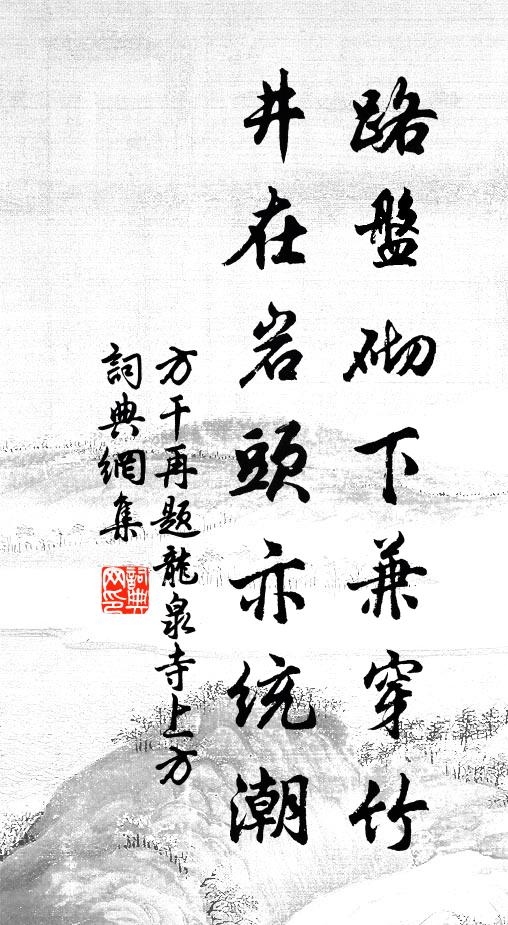 路盤砌下兼穿竹
井在岩頭亦統潮
方干再题龍泉寺上方
詞典網集
詞典網印